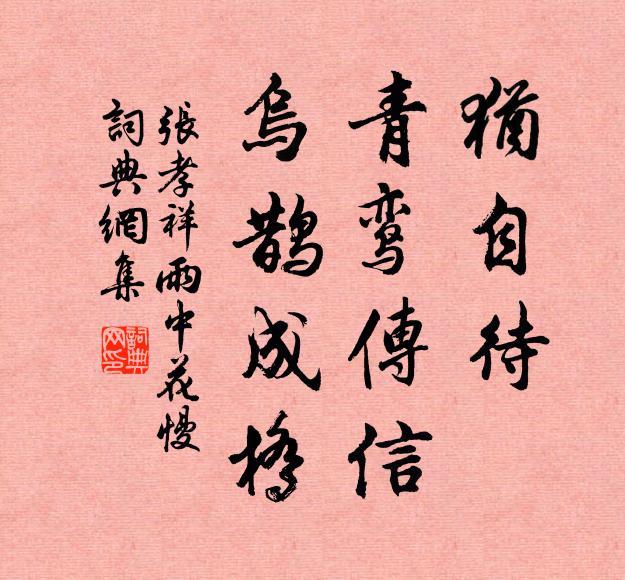 猶自待
青鸾傳信
烏鵲成橋
張孝祥雨中花慢
詞典網集
詞典网印